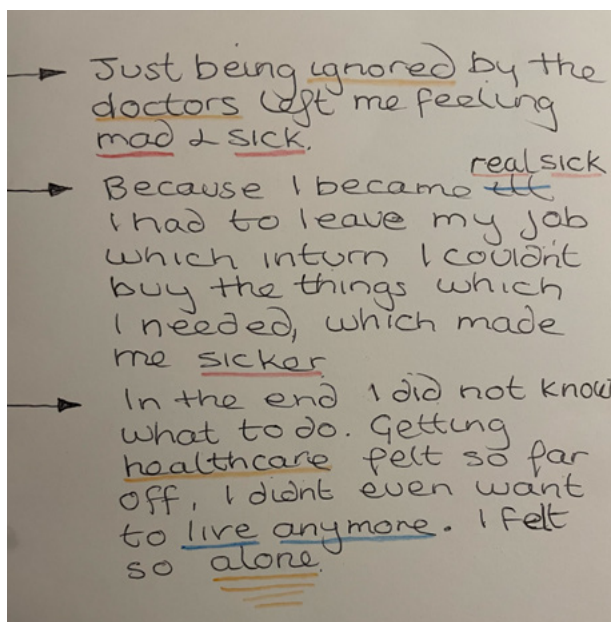 Just being ignored by the
doctors left me feeling
mad & sick.
real sick
Because I became ill
I had to leave my job
which inturn I couldn't
buy the things which
I needed, which made
me sicker
In the end I did not know
what to do. Getting
healthcare felt so far
off, I didnt even want
to live anymore. I felt
so alone.